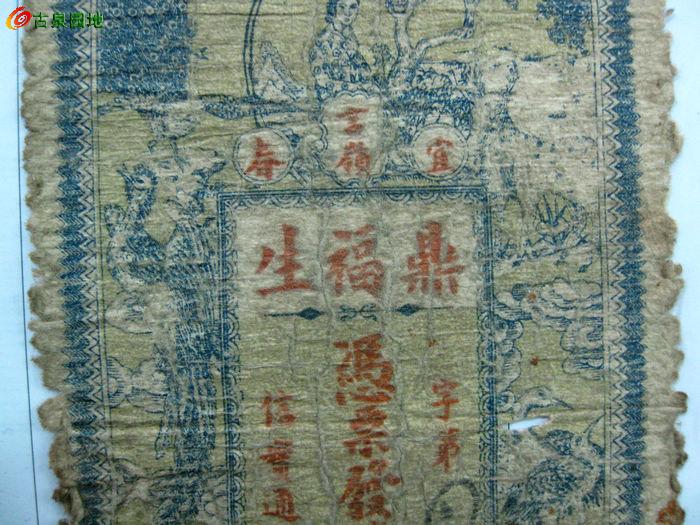 古泉园地
宜
嶺
春
鼎福生
字第
憑票發
信實通